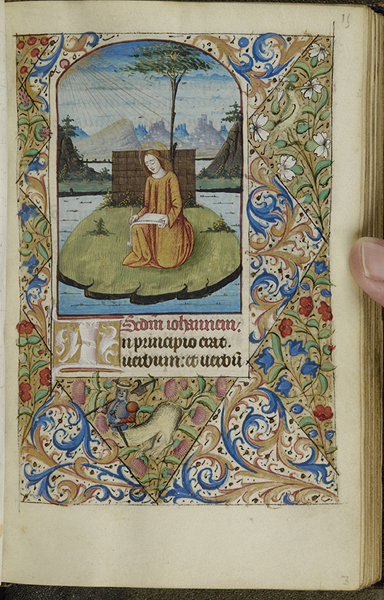 Scdm iohannem,
In principio erat.
uerbum: et uerbū
3